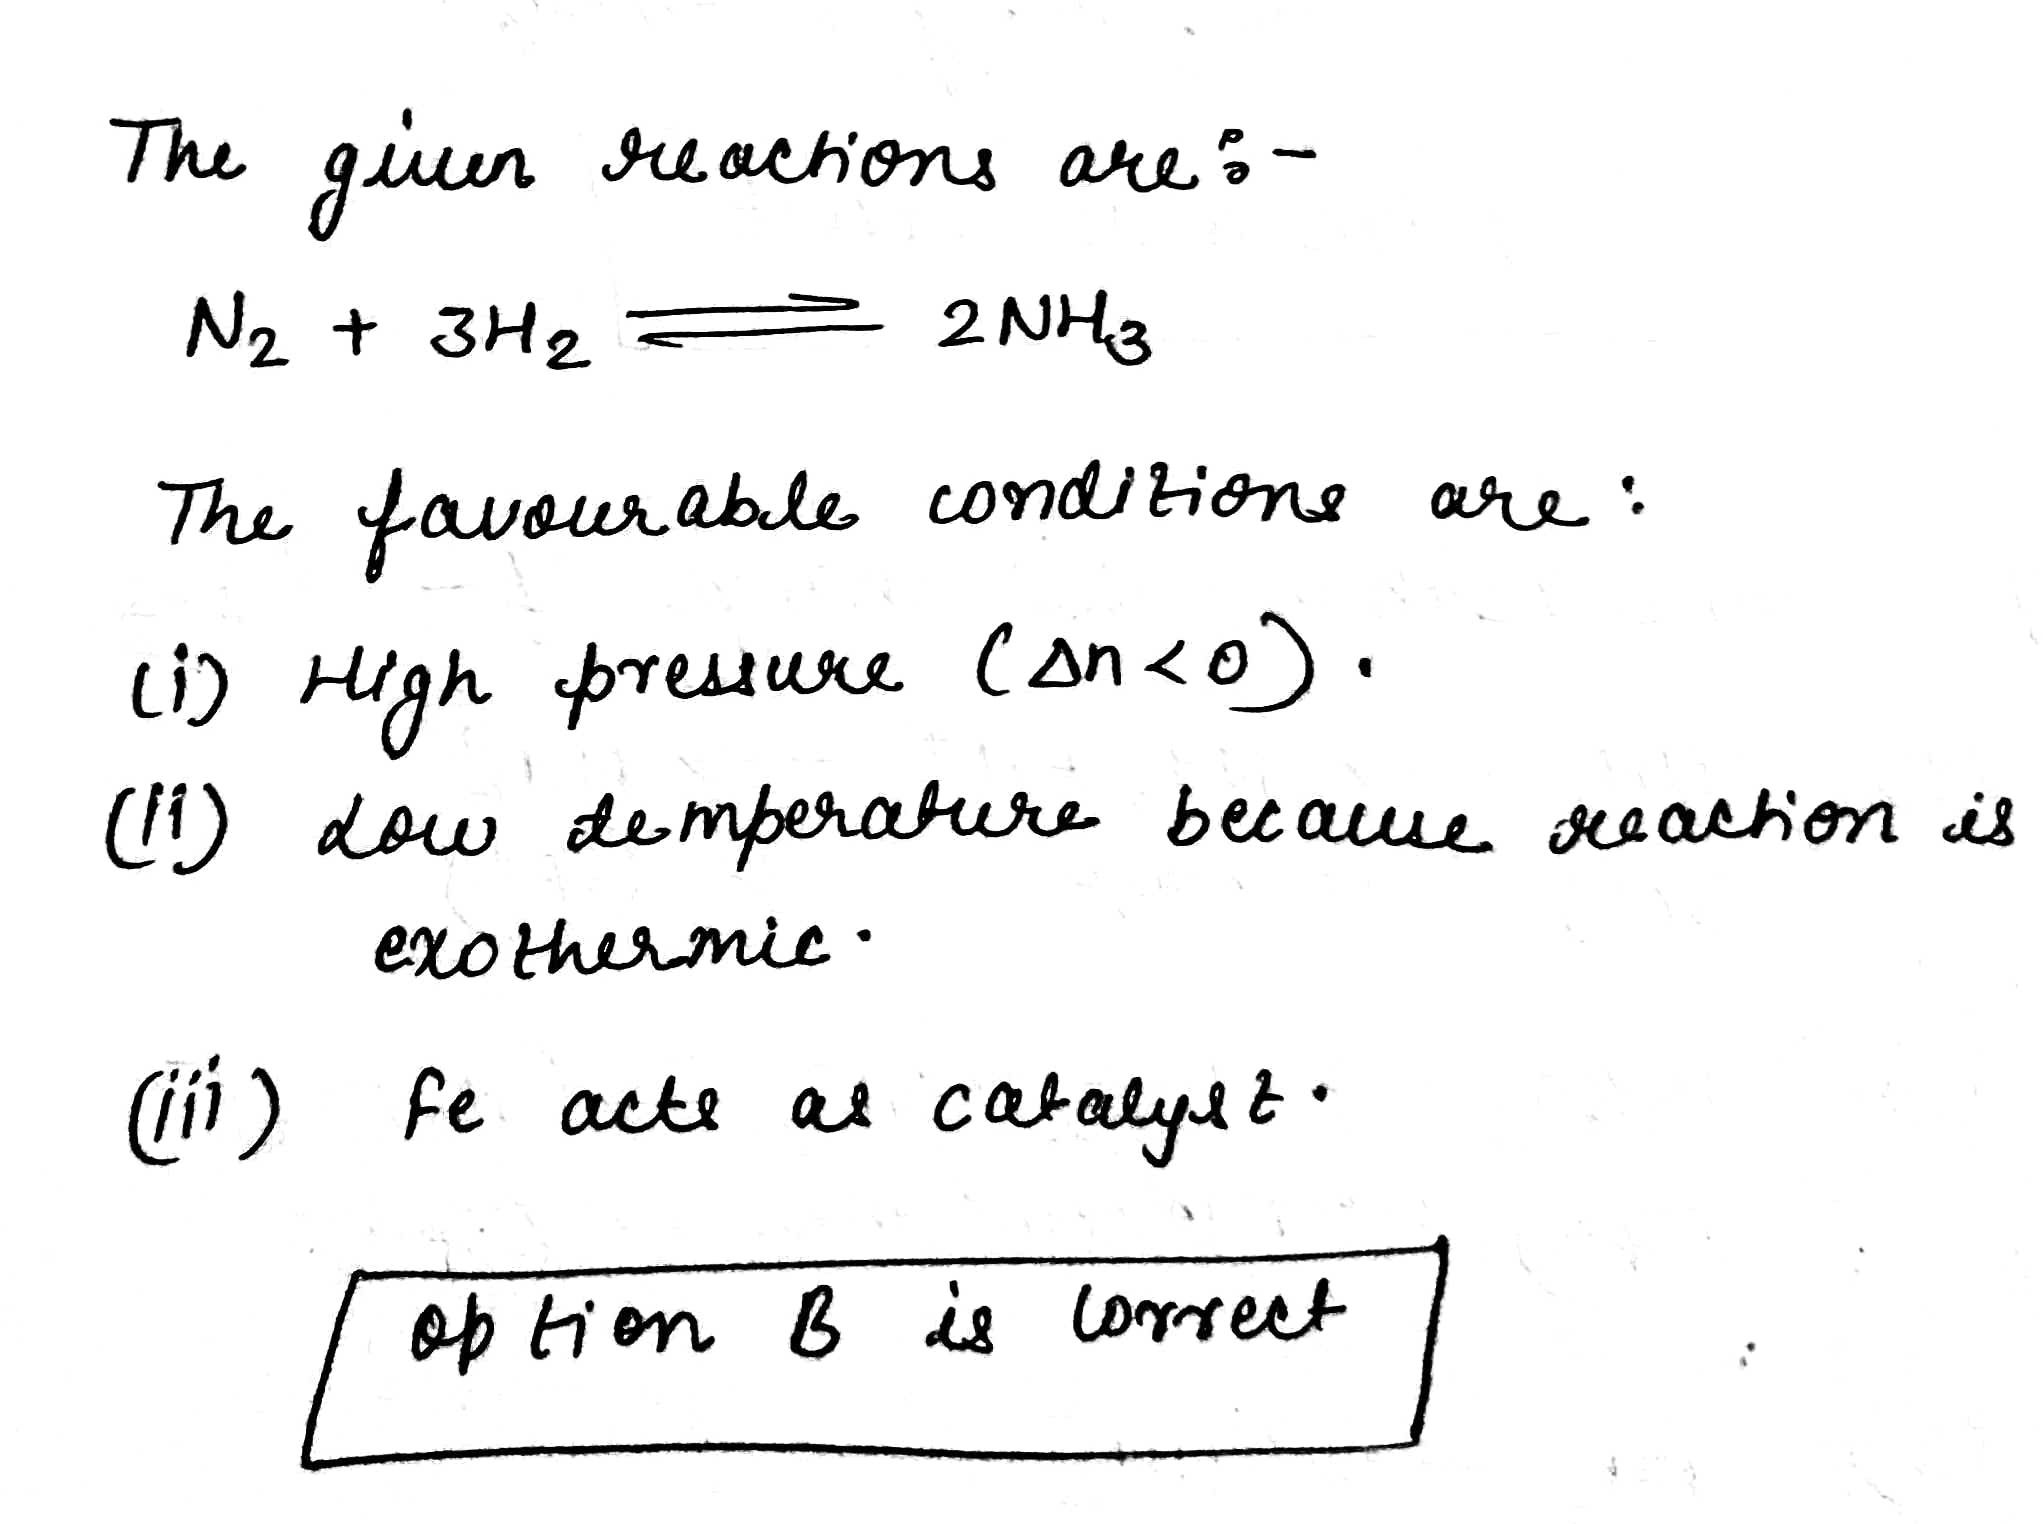 The given reactions are :-
N₂ + 3H₂ ⇌ 2NH₃
The favourable conditions are :
(i) High pressure (Δn<0).
(ii) Low temperature because reaction is
exothermic.
(iii) Fe acts as catalyst.
option B is correct